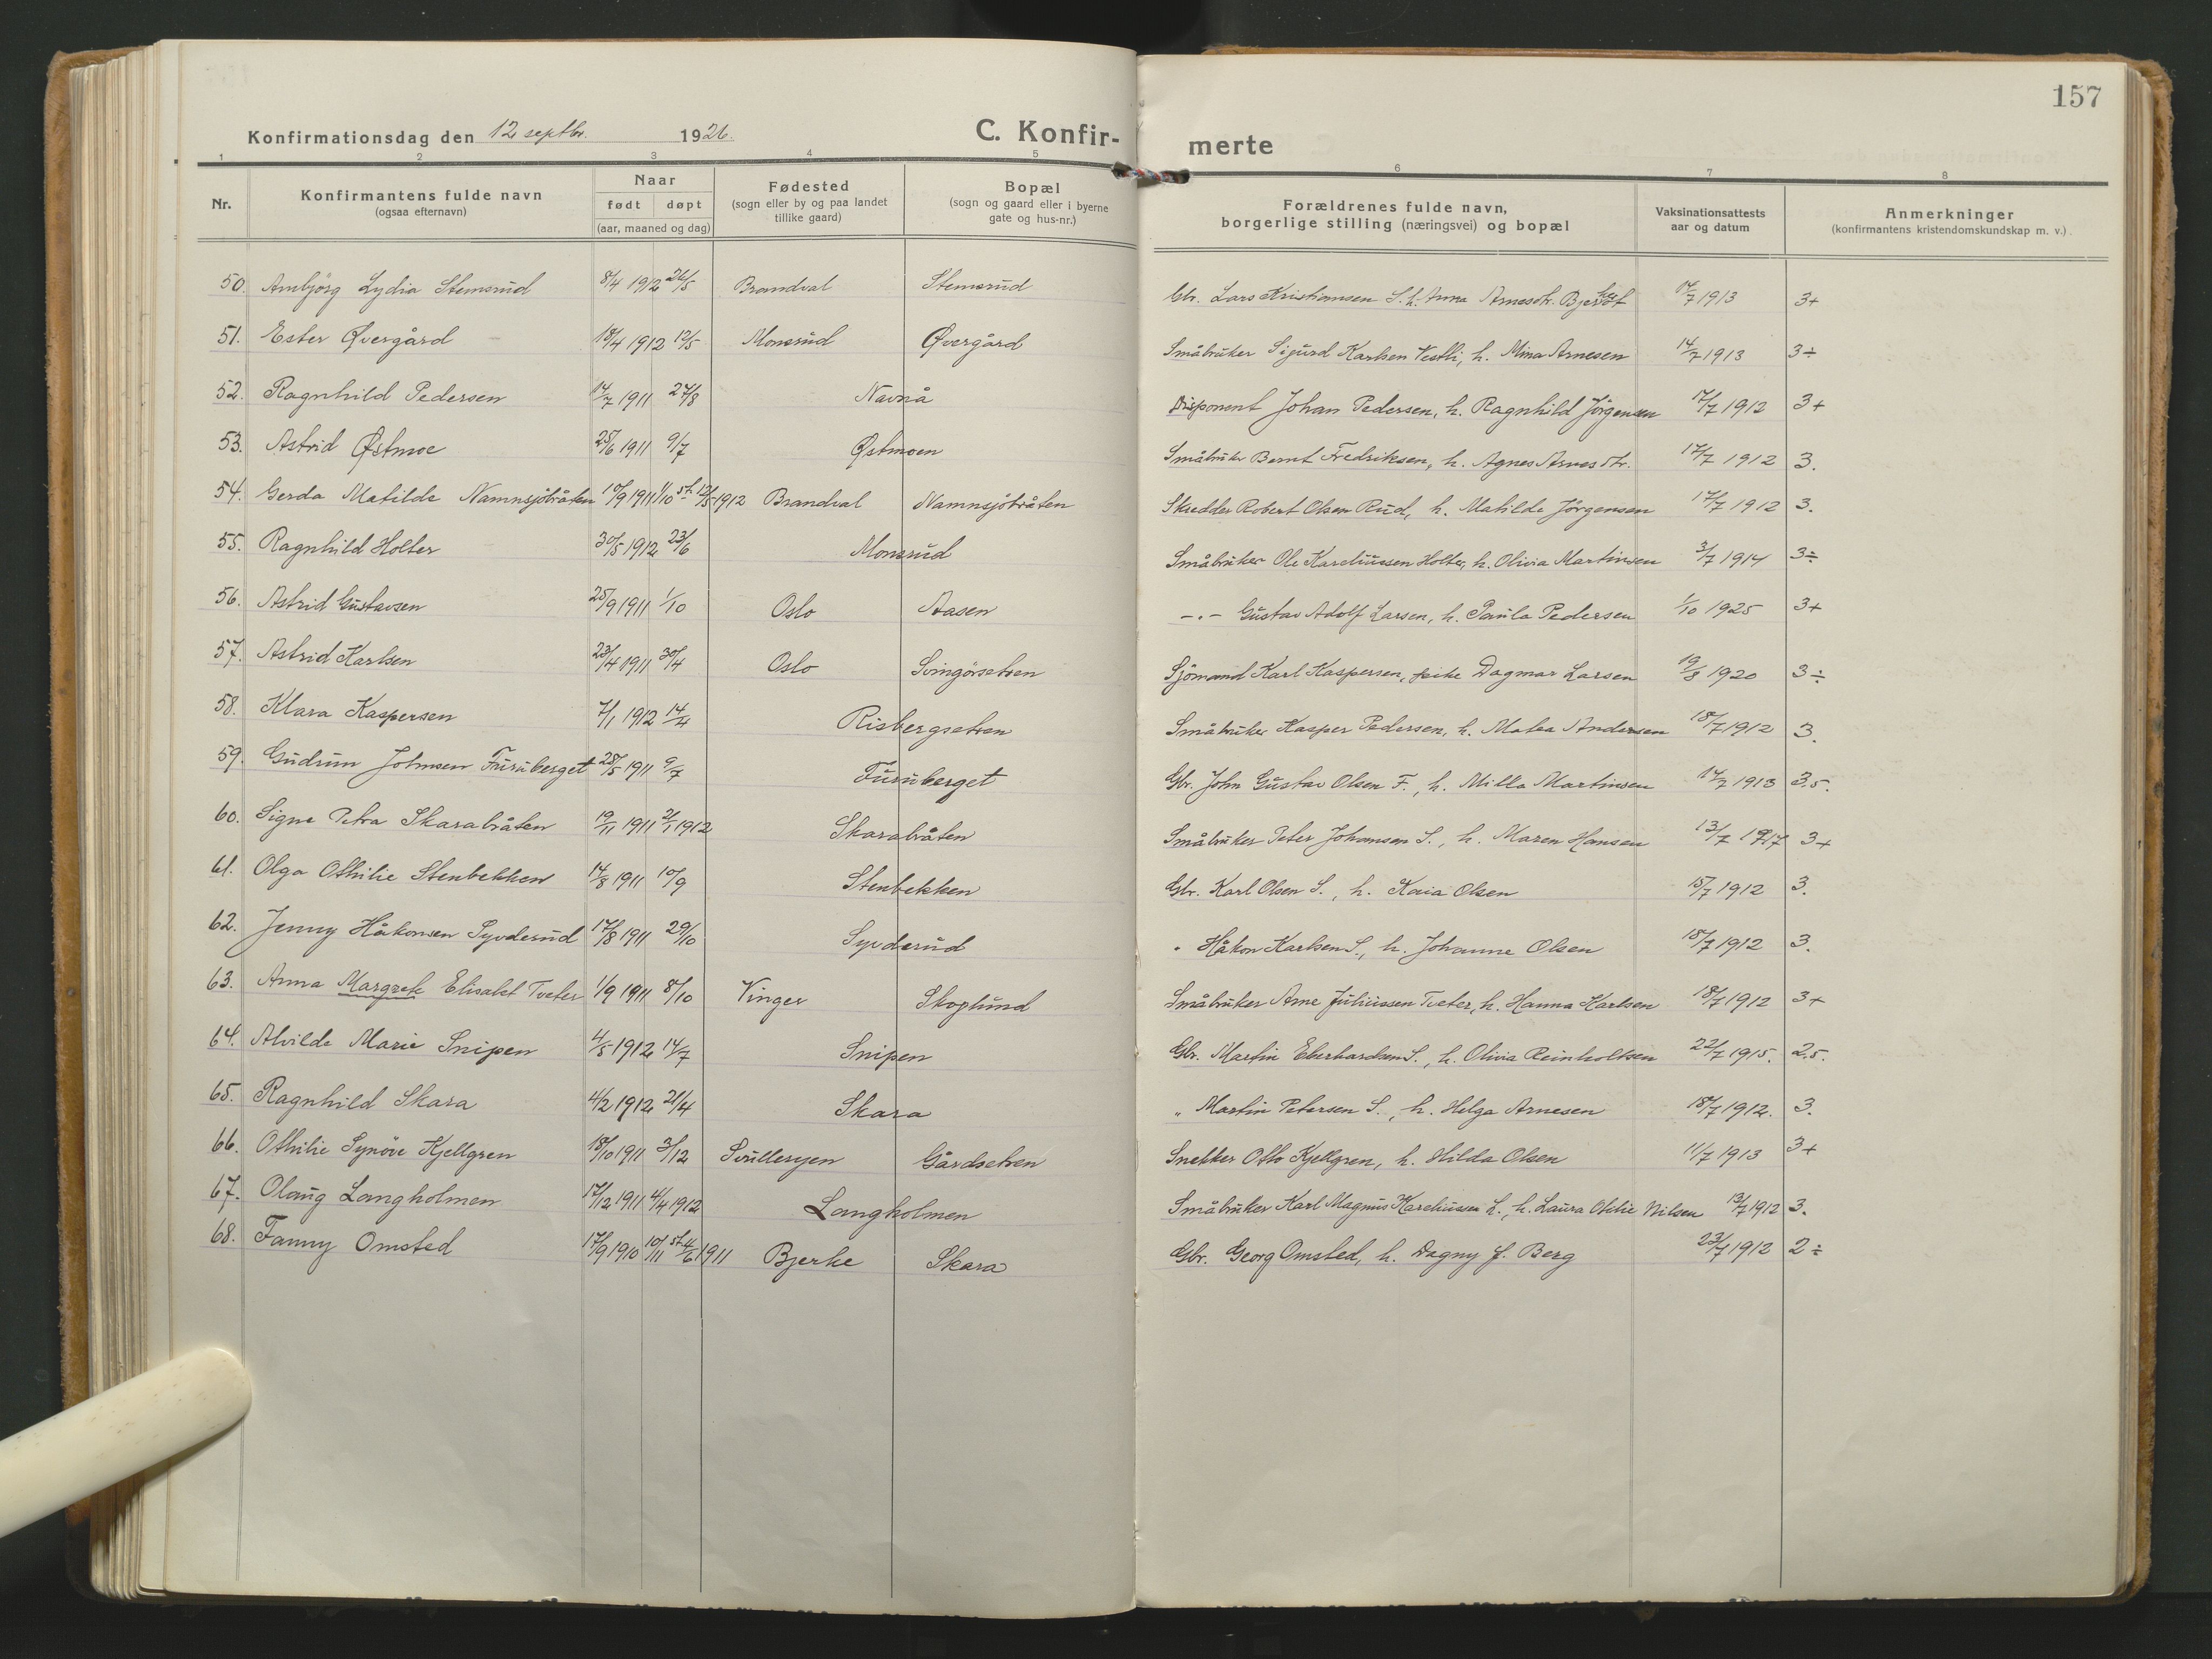 157
Konfirmationsdag den 12 septbr. 1926.
C. Konfirmerte
1 2 3 4 5 6 7 8
Nr.
Konfirmantens fulde navn
(ogsaa efternavn)
Naar
født døpt
(aar, maaned og dag)
Fødested
(sogn eller by og paa landet
tillike gaard)
Bopæl
(sogn og gaard eller i byerne
gate og hus-nr.)
Forældrenes fulde navn,
borgerlige stilling (næringsvei) og bopæl
Vaksinationsattests
aar og datum
Anmerkninger
(konfirmantens kristendomskundskap m. v.).
50. Arnbjörg Lydia Stemsrud 8/4 1912 26/5 Brandval Stemsrud Gbr. Lars Kristiansen S. h. Anna Arnesdtr. 14/7 1913 3+
51. Ester Øvergård 18/4 1912 12/5 Monsrud Øvergård Småbruker Sigurd Karlsen Vestli, h. Mina Arnesen 14/7 1913 3÷
52. Ragnhild Pedersen 14/7 1911 27/8 Navnå Disponent Johan Pedersen, h. Ragnhild Jörgensen 17/7 1912 3+
53. Astrid Østmoe 25/6 1911 9/7 Østmoen Småbruker Bernt Fredriksen, h. Agnes Arnesdtr. 17/7 1912 3.
54. Gerda Matilde Namnsjöbråten 10/9 1911 1/10 st. 12/5 1912 Brandval Namnsjöbråten Skredder Robert Olsen Rud, h. Matilde Jörgensen 17/7 1912 3.
55. Ragnhild Holter 30/5 1912 23/6 Monsrud Småbruker Ole Kareliussen Holter, h. Olivia Martinsen 3/7 1914 3÷
56. Astrid Gustavsen 25/9 1911 1/10 Oslo Aasen -.- Gustav Adolf Larsen, h. Paula Pedersen 1/10 1925 3+
57. Astrid Karlsen 23/4 1911 30/4 Oslo Svingörsetren Sjömand Karl Kaspersen, pike Dagmar Larsen 19/8 1920 3÷
58. Klara Kaspersen 7/1 1912 14/4 Risbergsetren Småbruker Kasper Pedersen, h. Malea Andersen 18/7 1912 3.
59. Gudrun Johnsen Furuberget 28/5 1911 9/7 Furuberget Gbr. John Gustav Olsen F., h. Milla Martinsen 14/7 1913 3.5.
60. Signe Petra Skarabråten 19/11 1911 21/1 1912 Skarabråten Småbruker Peter Johansen S., h. Maren Hansen 13/7 1917 3+
61. Olga Othilie Stenbekken 14/8 1911 10/9 Stenbekken Gbr. Karl Olsen S., h. Kaia Olsen 15/7 1912 3.
62. Jenny Håkonsen Syvderud 17/8 1911 29/10 Syvderud " Håkon Karlsen S., h. Johanne Olsen 18/7 1912 3.
63. Anna Margrete Elisabet Tveter 1/9 1911 8/10 Vinger Skoglund Småbruker Arne Juliussen Tveter, h. Hanna Karlsen 18/7 1912 3+
64. Alvilde Marie Snipen 4/5 1912 14/7 Snipen Gbr. Martin Eberhardsen S., h. Olivia Reinholtsen 22/7 1915. 2.5.
65. Ragnhild Skara 4/2 1912 21/4 Skara " Martin Petersen S., h. Helga Arnesen 18/7 1912. 3.
66. Othilie Synöve Kjellgren 18/10 1911 3/12 Svulleryen Gårdsetren Snekker Otto Kjellgren, h. Hilda Olsen 11/7 1913 3+
67. Olaug Langholmen 17/12 1911 4/4 1912 Langholmen Småbruker Karl Magnus Kareliussen L., h. Laura Otilie Nilsen 13/7 1912 3.
68. Fanny Omsted 17/9 1910 10/11 st. 4/6 1911 Bjerke Skara Gbr. Georg Omsted, h. Dagny J. Berg 23/7 1912 2÷